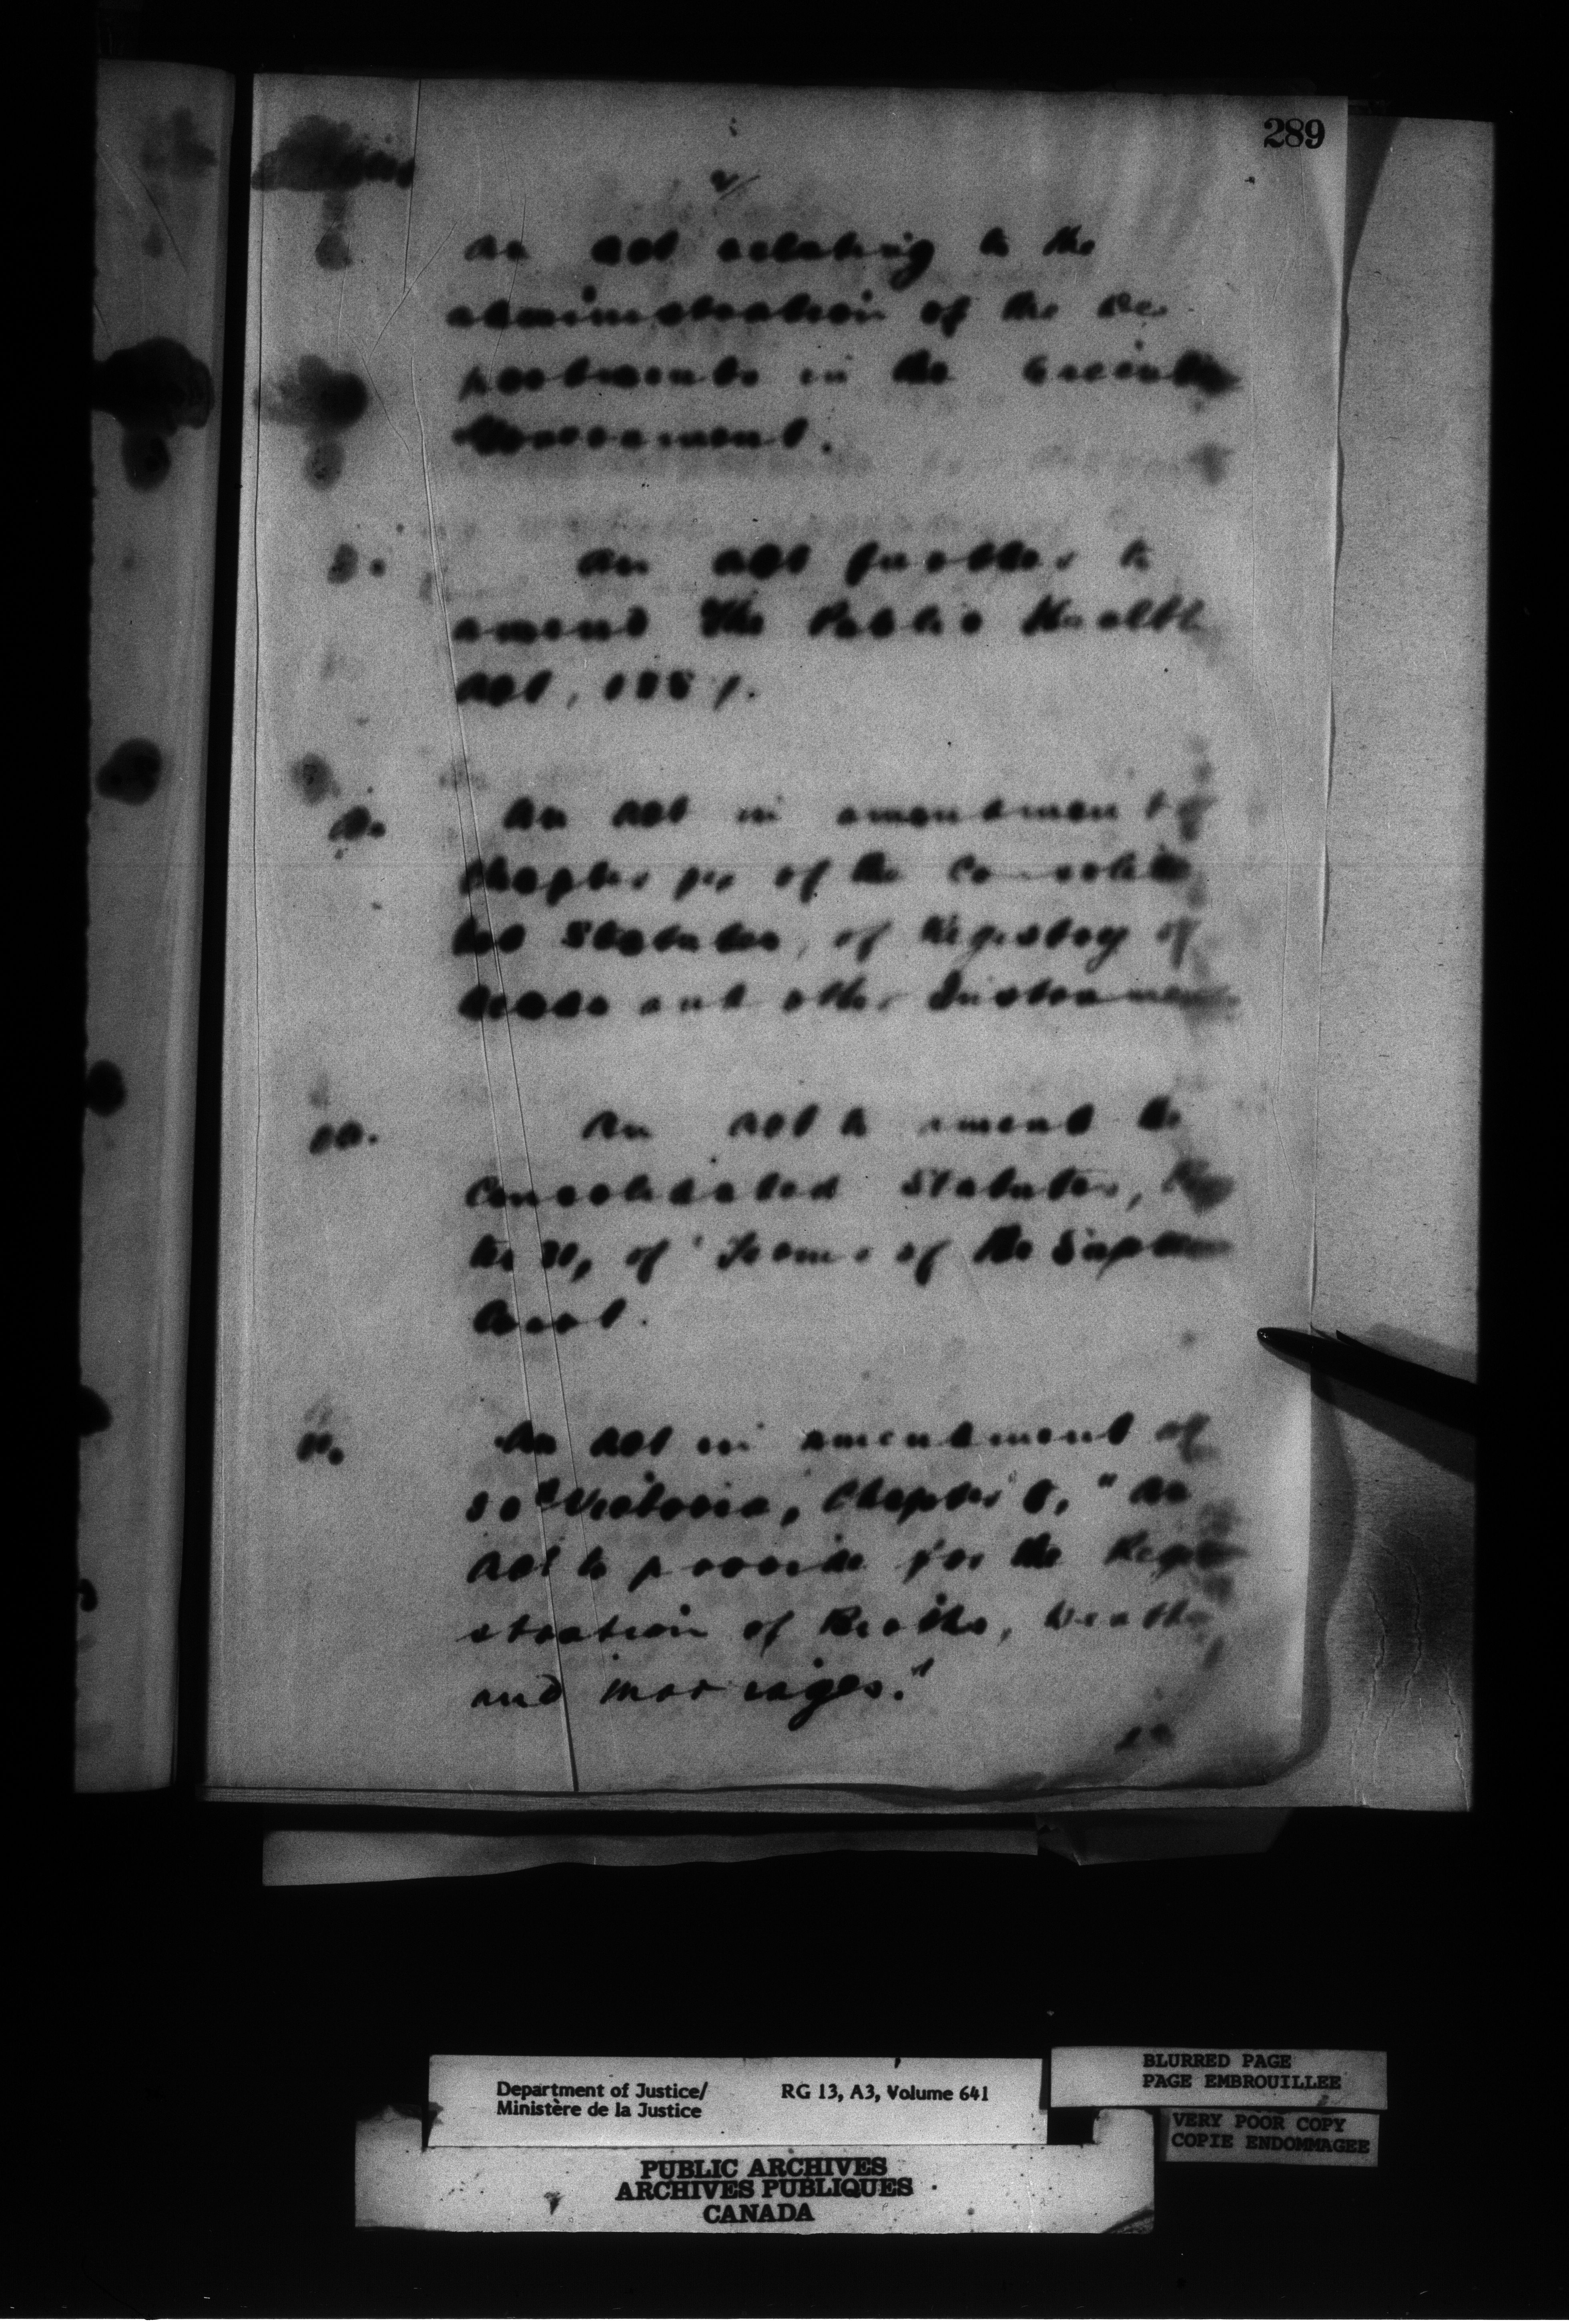 289
2/
An Act relating to the
administration of the De-
partments in the
Government.
An Act further to
amend The Public Health
Act, 188
An Act in amendment of
Chapter of the Consolida
ted Statutes, of Registry of
deeds and other Instruments
10. An Act to amend the
Consolidated Statutes, Chap
ter of of the Supreme
Court.
11. An Act in amendment of
50 Victoria, Chapter "An
Act to provide for the Regi
stration of Births, Deaths
and marriages."
Department of Justice/
Ministère de la Justice
RG 13, A3, Volume 641
BLURRED PAGE
PAGE EMBROUILLEE
VERY POOR COPY
COPIE ENDOMMAGEE
PUBLIC ARCHIVES
ARCHIVES PUBLIQUES
CANADA